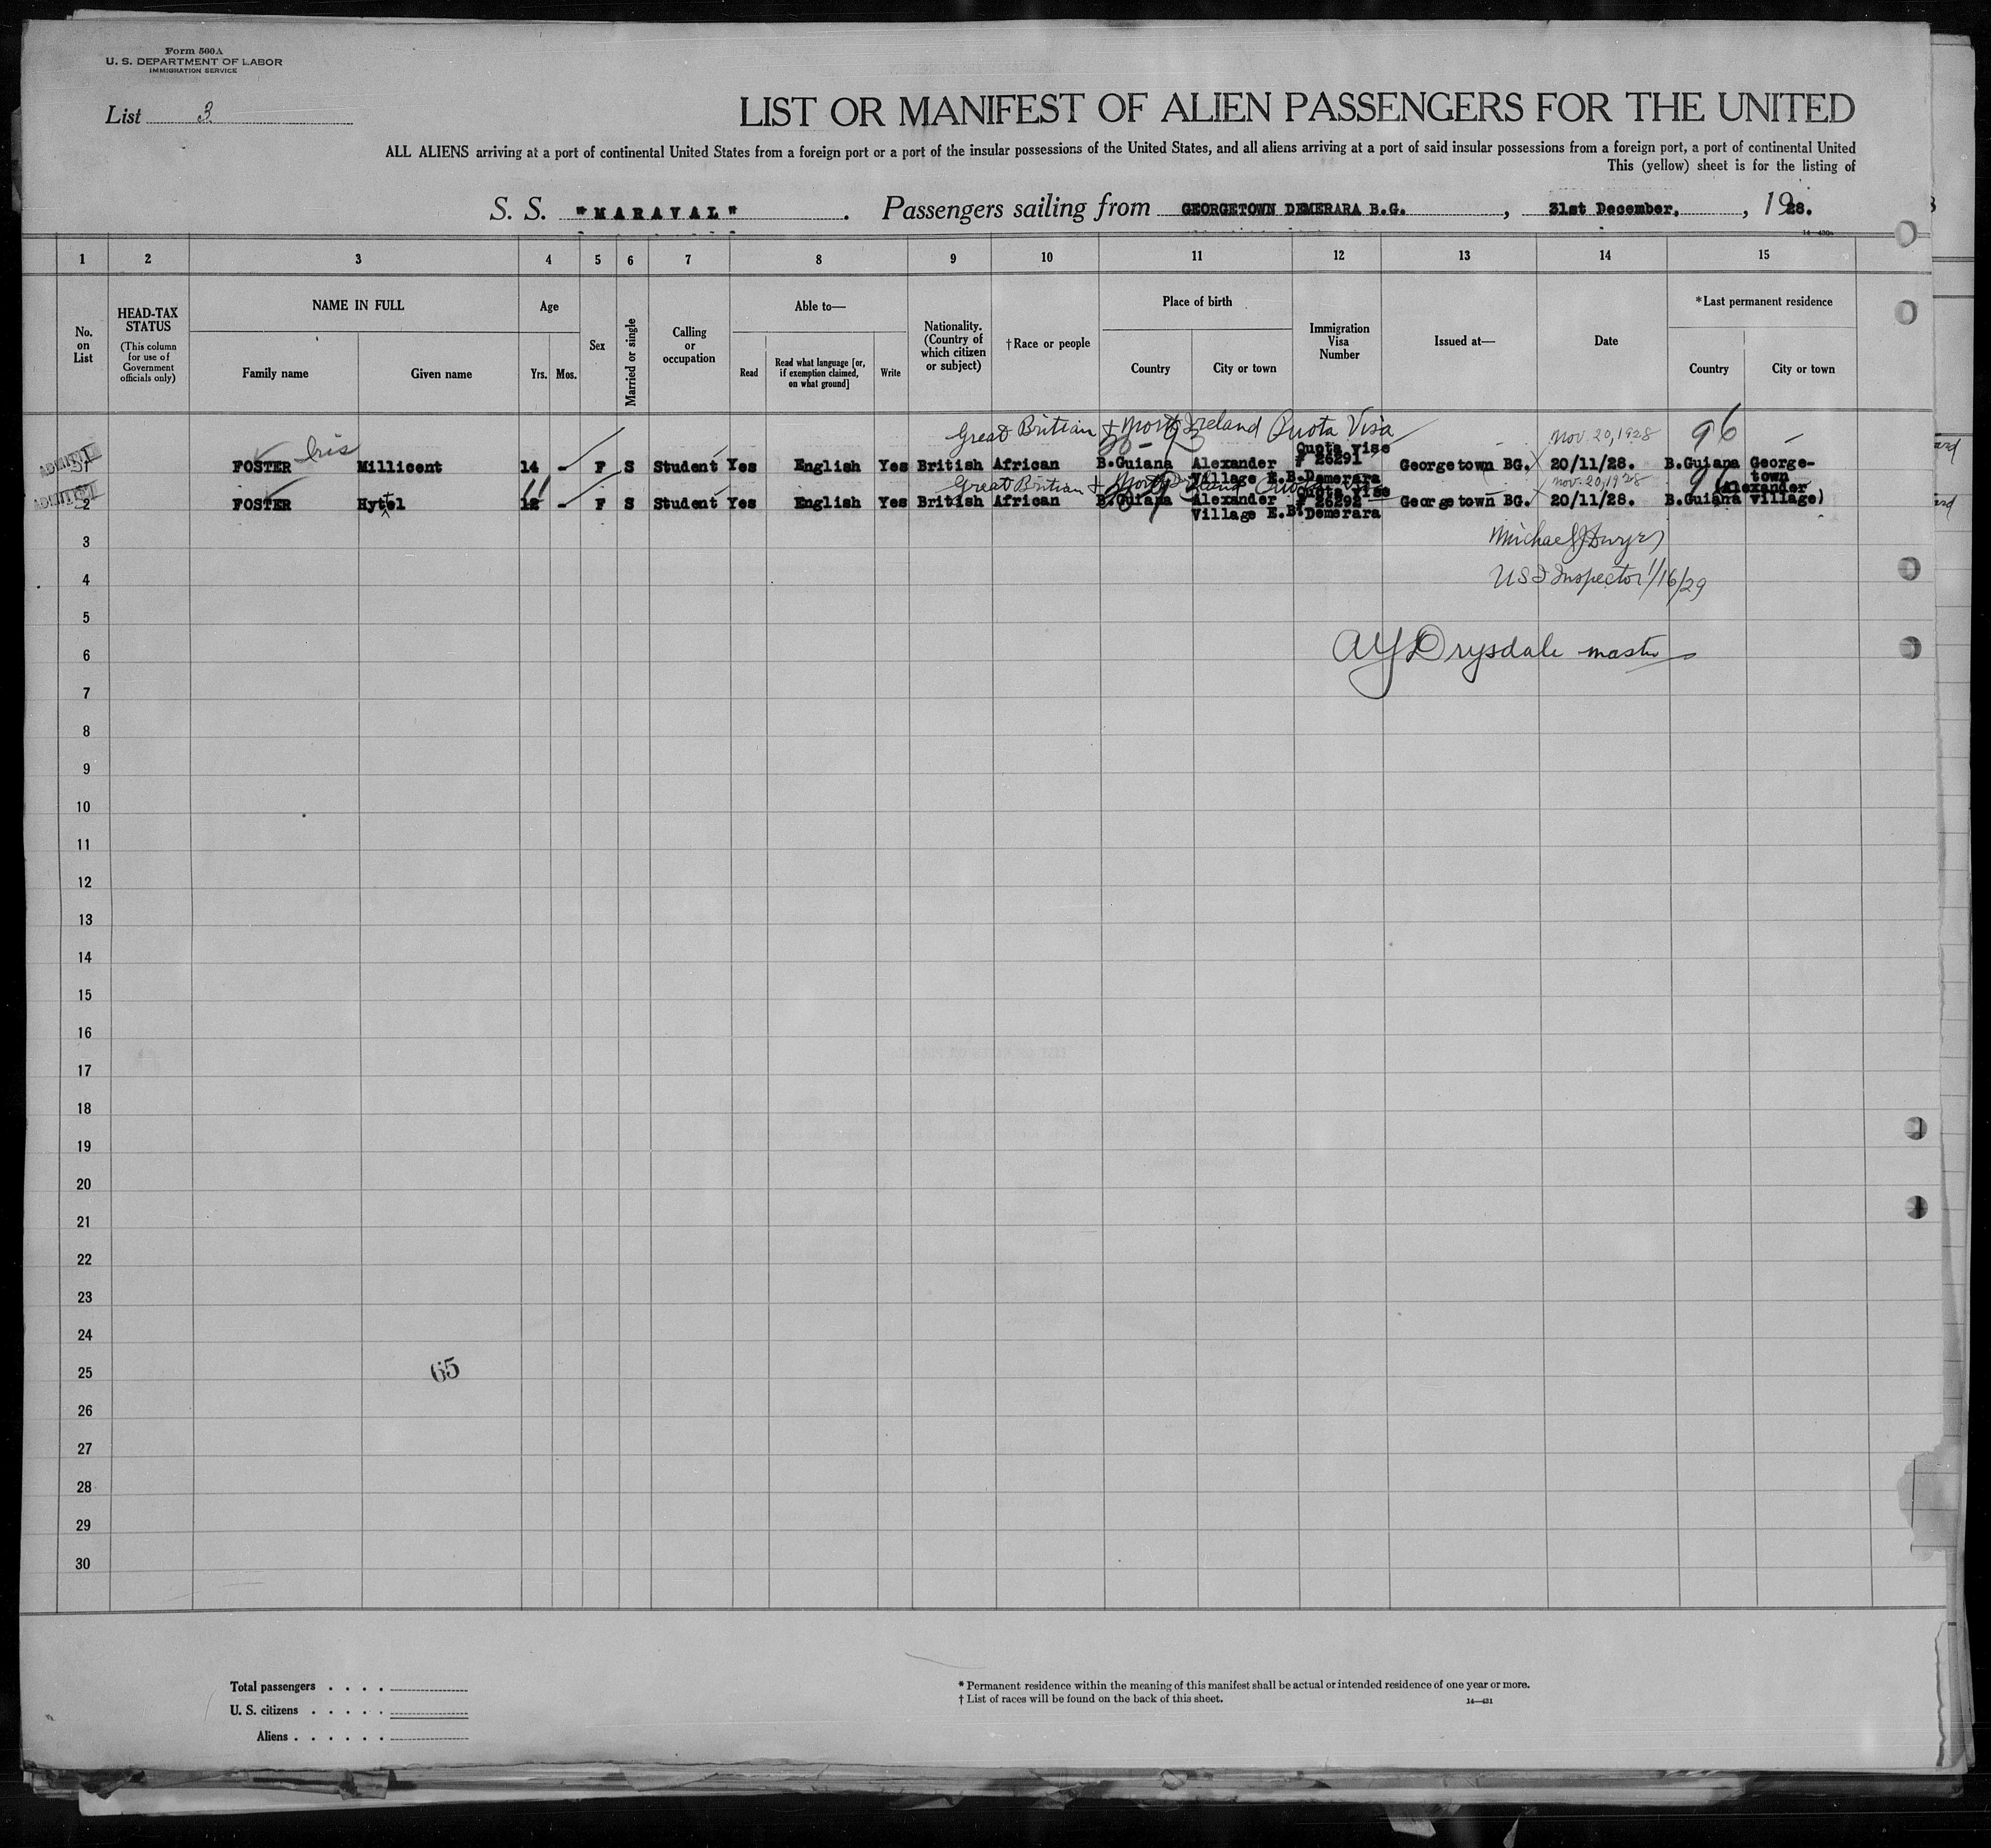 Form 500A
U. S. DEPARTMENT OF LABOR
IMMIGRATION SERVICE
List 3
LIST OR MANIFEST OF ALIEN PASSENGERS FOR THE UNITED
ALL ALIENS arriving at a port of continental United States from a foreign port or a port of the insular possessions of the United States, and all aliens arriving at a port of said insular possessions from a foreign port, a port of continental United
This (yellow) sheet is for the listing of
S. S. "MARAVAL". Passengers sailing from GEORGETOWN DEMERARA B.G., 31st December, , 1928.
1 2 3 4 5 6 7 8 9 10 11 12 13 14 15
No. on List
HEAD-TAX STATUS
(This column for use of Government officials only)
NAME IN FULL
Family name Given name
Age
Yrs. Mos.
Sex
Married or single
Calling or occupation
Able to—
Read
Read what language [or, if exemption claimed, on what ground]
Write
Nationality. (Country of which citizen or subject)
†Race or people
Place of birth
Country City or town
Immigration Visa Number
Issued at—
Date
*Last permanent residence
Country City or town
Great Britian + North Ireland Quota Visa Nov. 20, 1928 96
ADMITTED 1 FOSTER Iris Millicent 14 - F S Student Yes English Yes British African B.Guiana Alexander Village E.B.Demerara Quota Vise # 26291 Georgetown BG. 20/11/28. B.Guiana Georgetown
Great Britian + Nov. 20, 1928 96
ADMITTED 2 FOSTER Hytel 12 11 - F S Student Yes English Yes British African B.Guiana Alexander Village E.B.Demerara Quota Vise # 26292 Georgetown BG. 20/11/28. B.Guiana (Alexander Village)
3 Michael J Dwyer
4 US I Inspector 1/16/29
5
6 Drysdale master
7
8
9
10
11
12
13
14
15
16
17
18
19
20
21
22
23
24
25 65
26
27
28
29
30
Total passengers . . . .
U. S. citizens . . . . .
Aliens . . . . . .
* Permanent residence within the meaning of this manifest shall be actual or intended residence of one year or more.
† List of races will be found on the back of this sheet.
14—431